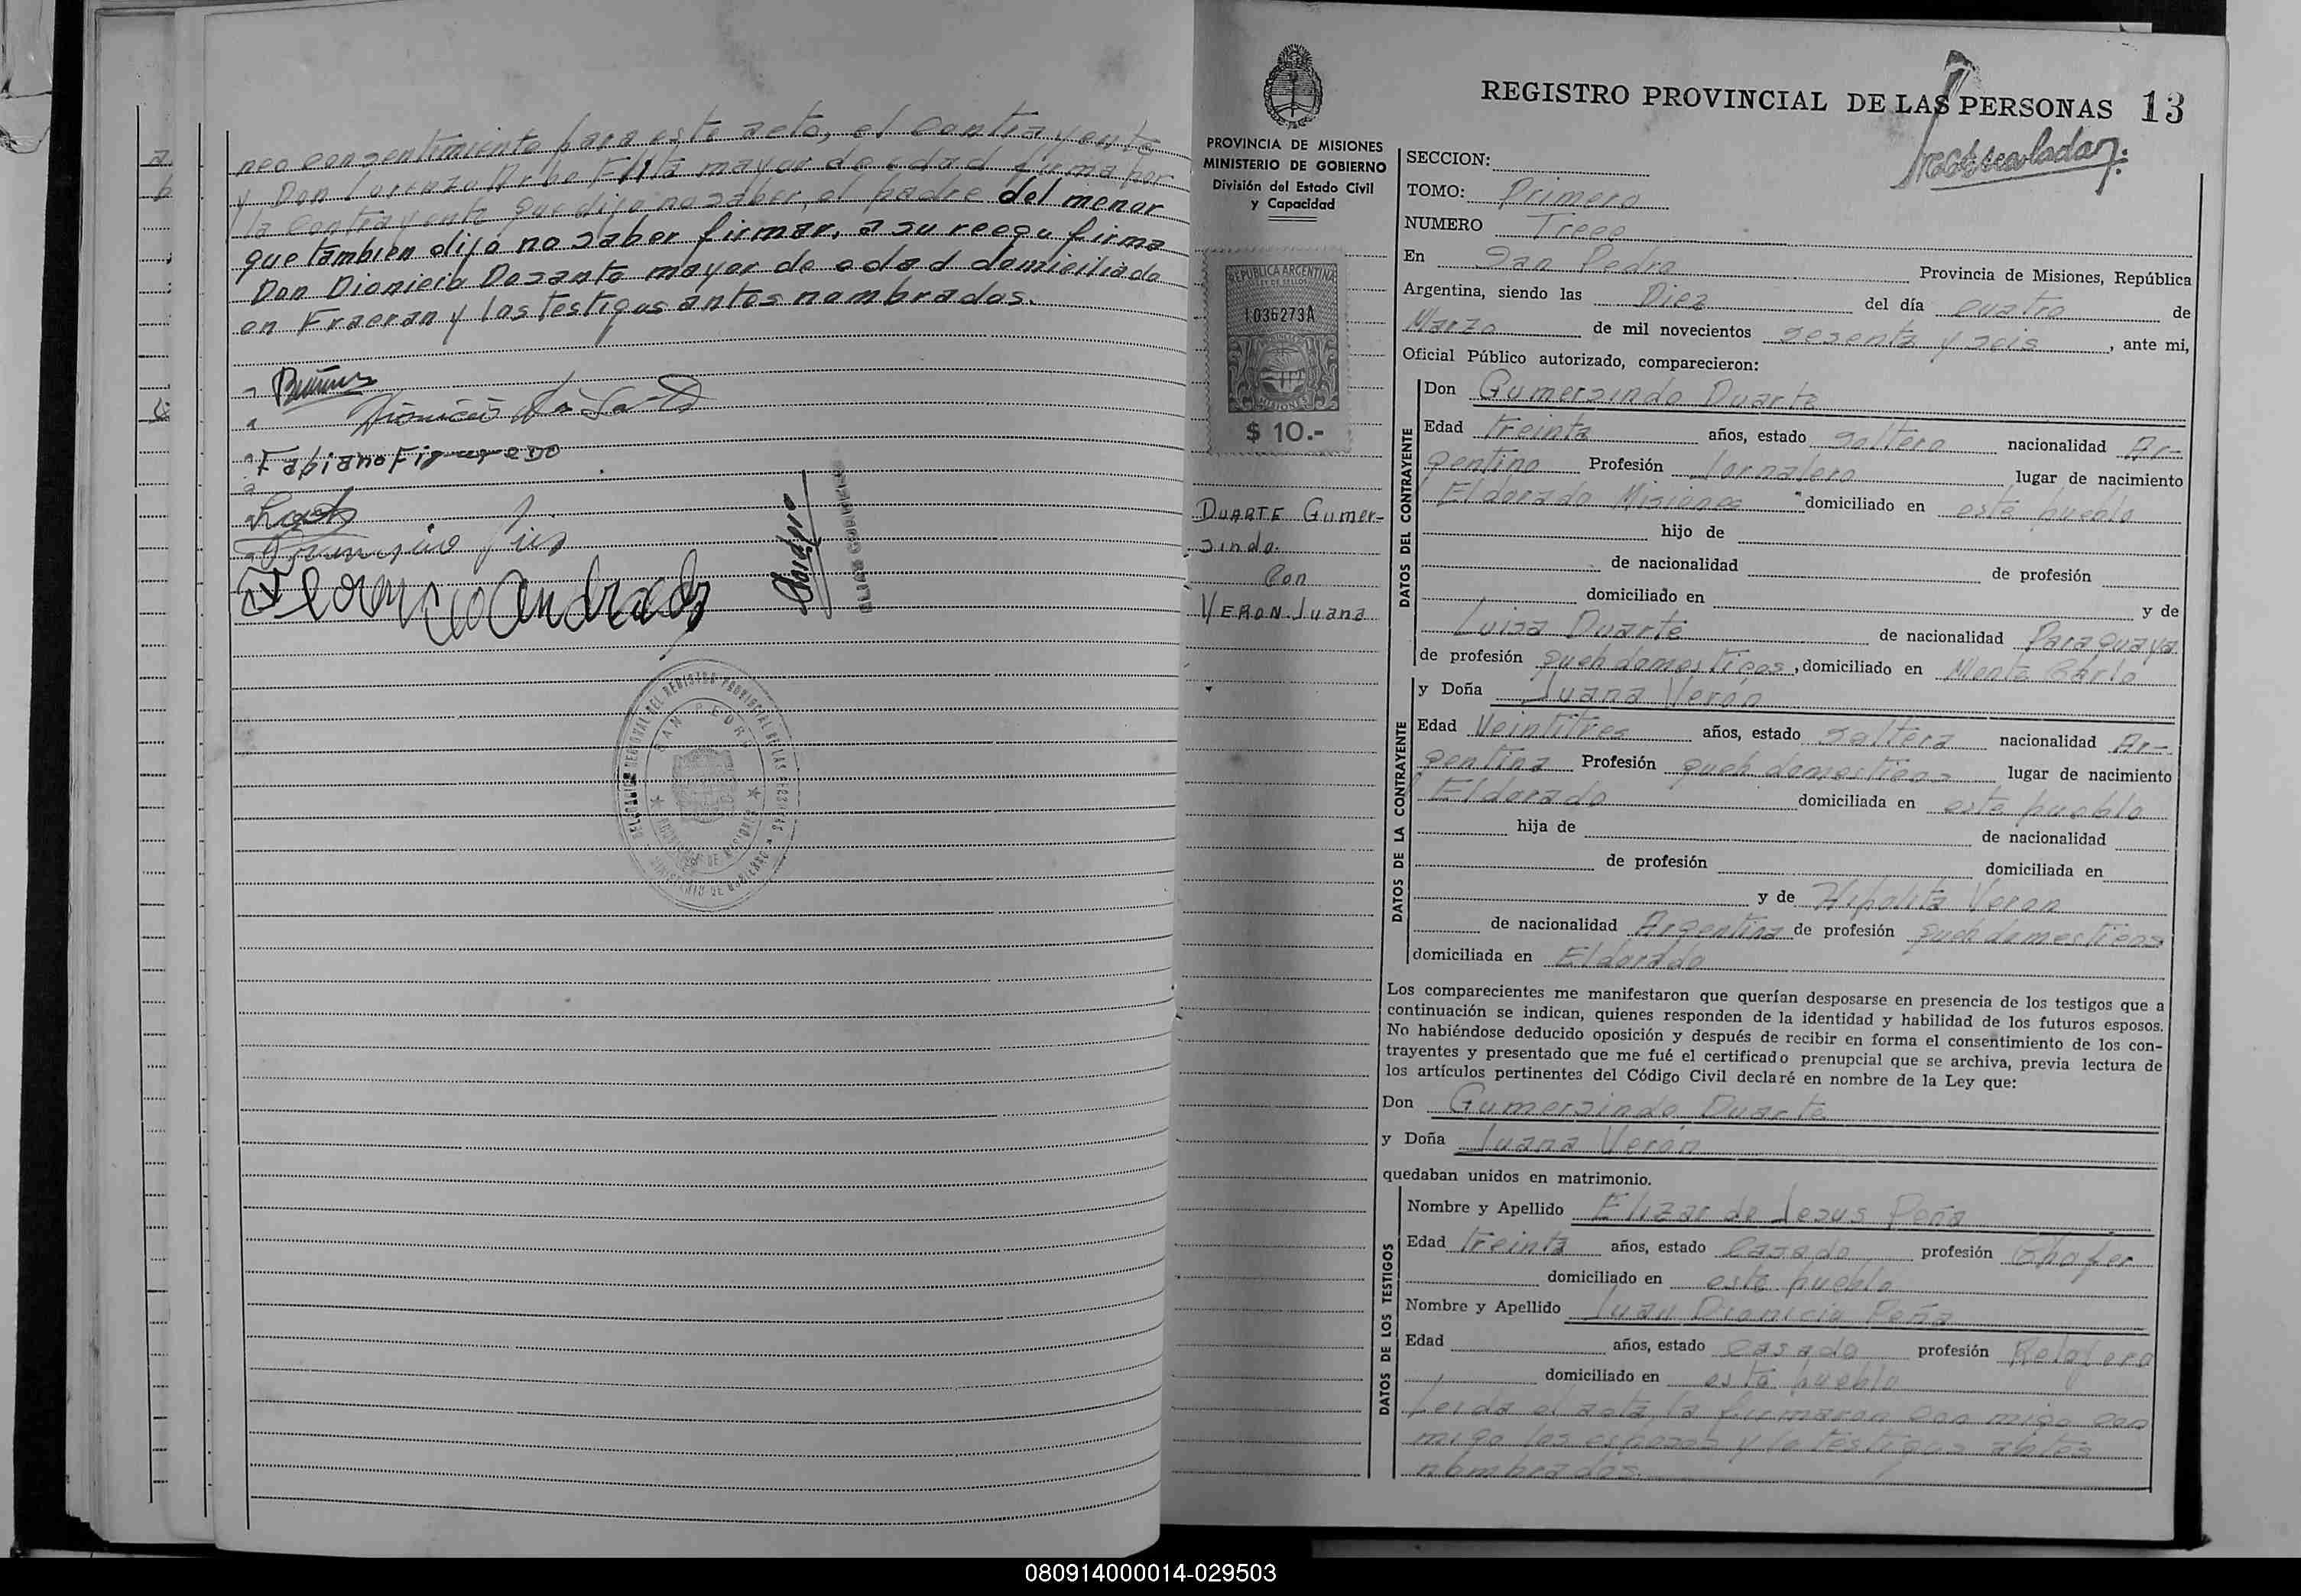 neo consentimiento para este acto, el contrayente
y Don Lorenzo mayor de edad firma por
la contrayente que dijo no saber, el padre del menor
que tambien dijo no saber firmar, a su reogu firma
Don Dionicio Dosanto mayor de edad domiciliado
en Fracran y los testigos antes nombrados.
Fabiano Figueredo
DELEGACION REGIONAL DEL REGISTRO PROVINCIAL DE LAS PERSONAS
SAN PEDRO
MINISTERIO DE GOBIERNO
PROVINCIA DE MISIONES
MINISTERIO DE GOBIERNO
División del Estado Civil
y Capacidad
REPUBLICA ARGENTINA
LEY DE SELLOS
1036273A
MISIONES
$ 10.-
DUARTE Gumer-
sindo.
Con
VERON Juana
REGISTRO PROVINCIAL DE LAS PERSONAS 13
SECCION:
TOMO: Primero
NUMERO Trece
En San Pedro Provincia de Misiones, República
Argentina, siendo las Diez del día cuatro de
Marzo de mil novecientos sesenta y seis, ante mi,
Oficial Público autorizado, comparecieron:
DATOS DEL CONTRAYENTE
Don Gumersindo Duarte
Edad treinta años, estado soltero nacionalidad Ar-
gentino Profesión Jornalero lugar de nacimiento
Eldorado Misiones domiciliado en este pueblo
hijo de
de nacionalidad de profesión
domiciliado en y de
Luisa Duarte de nacionalidad Paraguaya
de profesión queh domesticos, domiciliado en Monte Carlo
DATOS DE LA CONTRAYENTE
y Doña Juana Veron
Edad Veintitres años, estado soltera nacionalidad Ar-
gentina Profesión queh domesticos lugar de nacimiento
Eldorado domiciliada en este pueblo
hija de de nacionalidad
de profesión domiciliada en
y de Hipolita Veron
de nacionalidad Argentina de profesión queh domesticos
domiciliada en Eldorado
Los comparecientes me manifestaron que querían desposarse en presencia de los testigos que a
continuación se indican, quienes responden de la identidad y habilidad de los futuros esposos.
No habiéndose deducido oposición y después de recibir en forma el consentimiento de los con-
trayentes y presentado que me fué el certificado prenupcial que se archiva, previa lectura de
los artículos pertinentes del Código Civil declaré en nombre de la Ley que:
Don Gumersindo Duarte
y Doña Juana Veron
quedaban unidos en matrimonio.
DATOS DE LOS TESTIGOS
Nombre y Apellido Elizar de Jesus Peña
Edad treinta años, estado casado profesión Chofer
domiciliado en este pueblo
Nombre y Apellido Juan Dionicio Peña
Edad años, estado casado profesión
domiciliado en este pueblo
Leida el acta la firmaron con migo con
migo los esposos y lo testigos antes
nombrados.
080914000014-029503